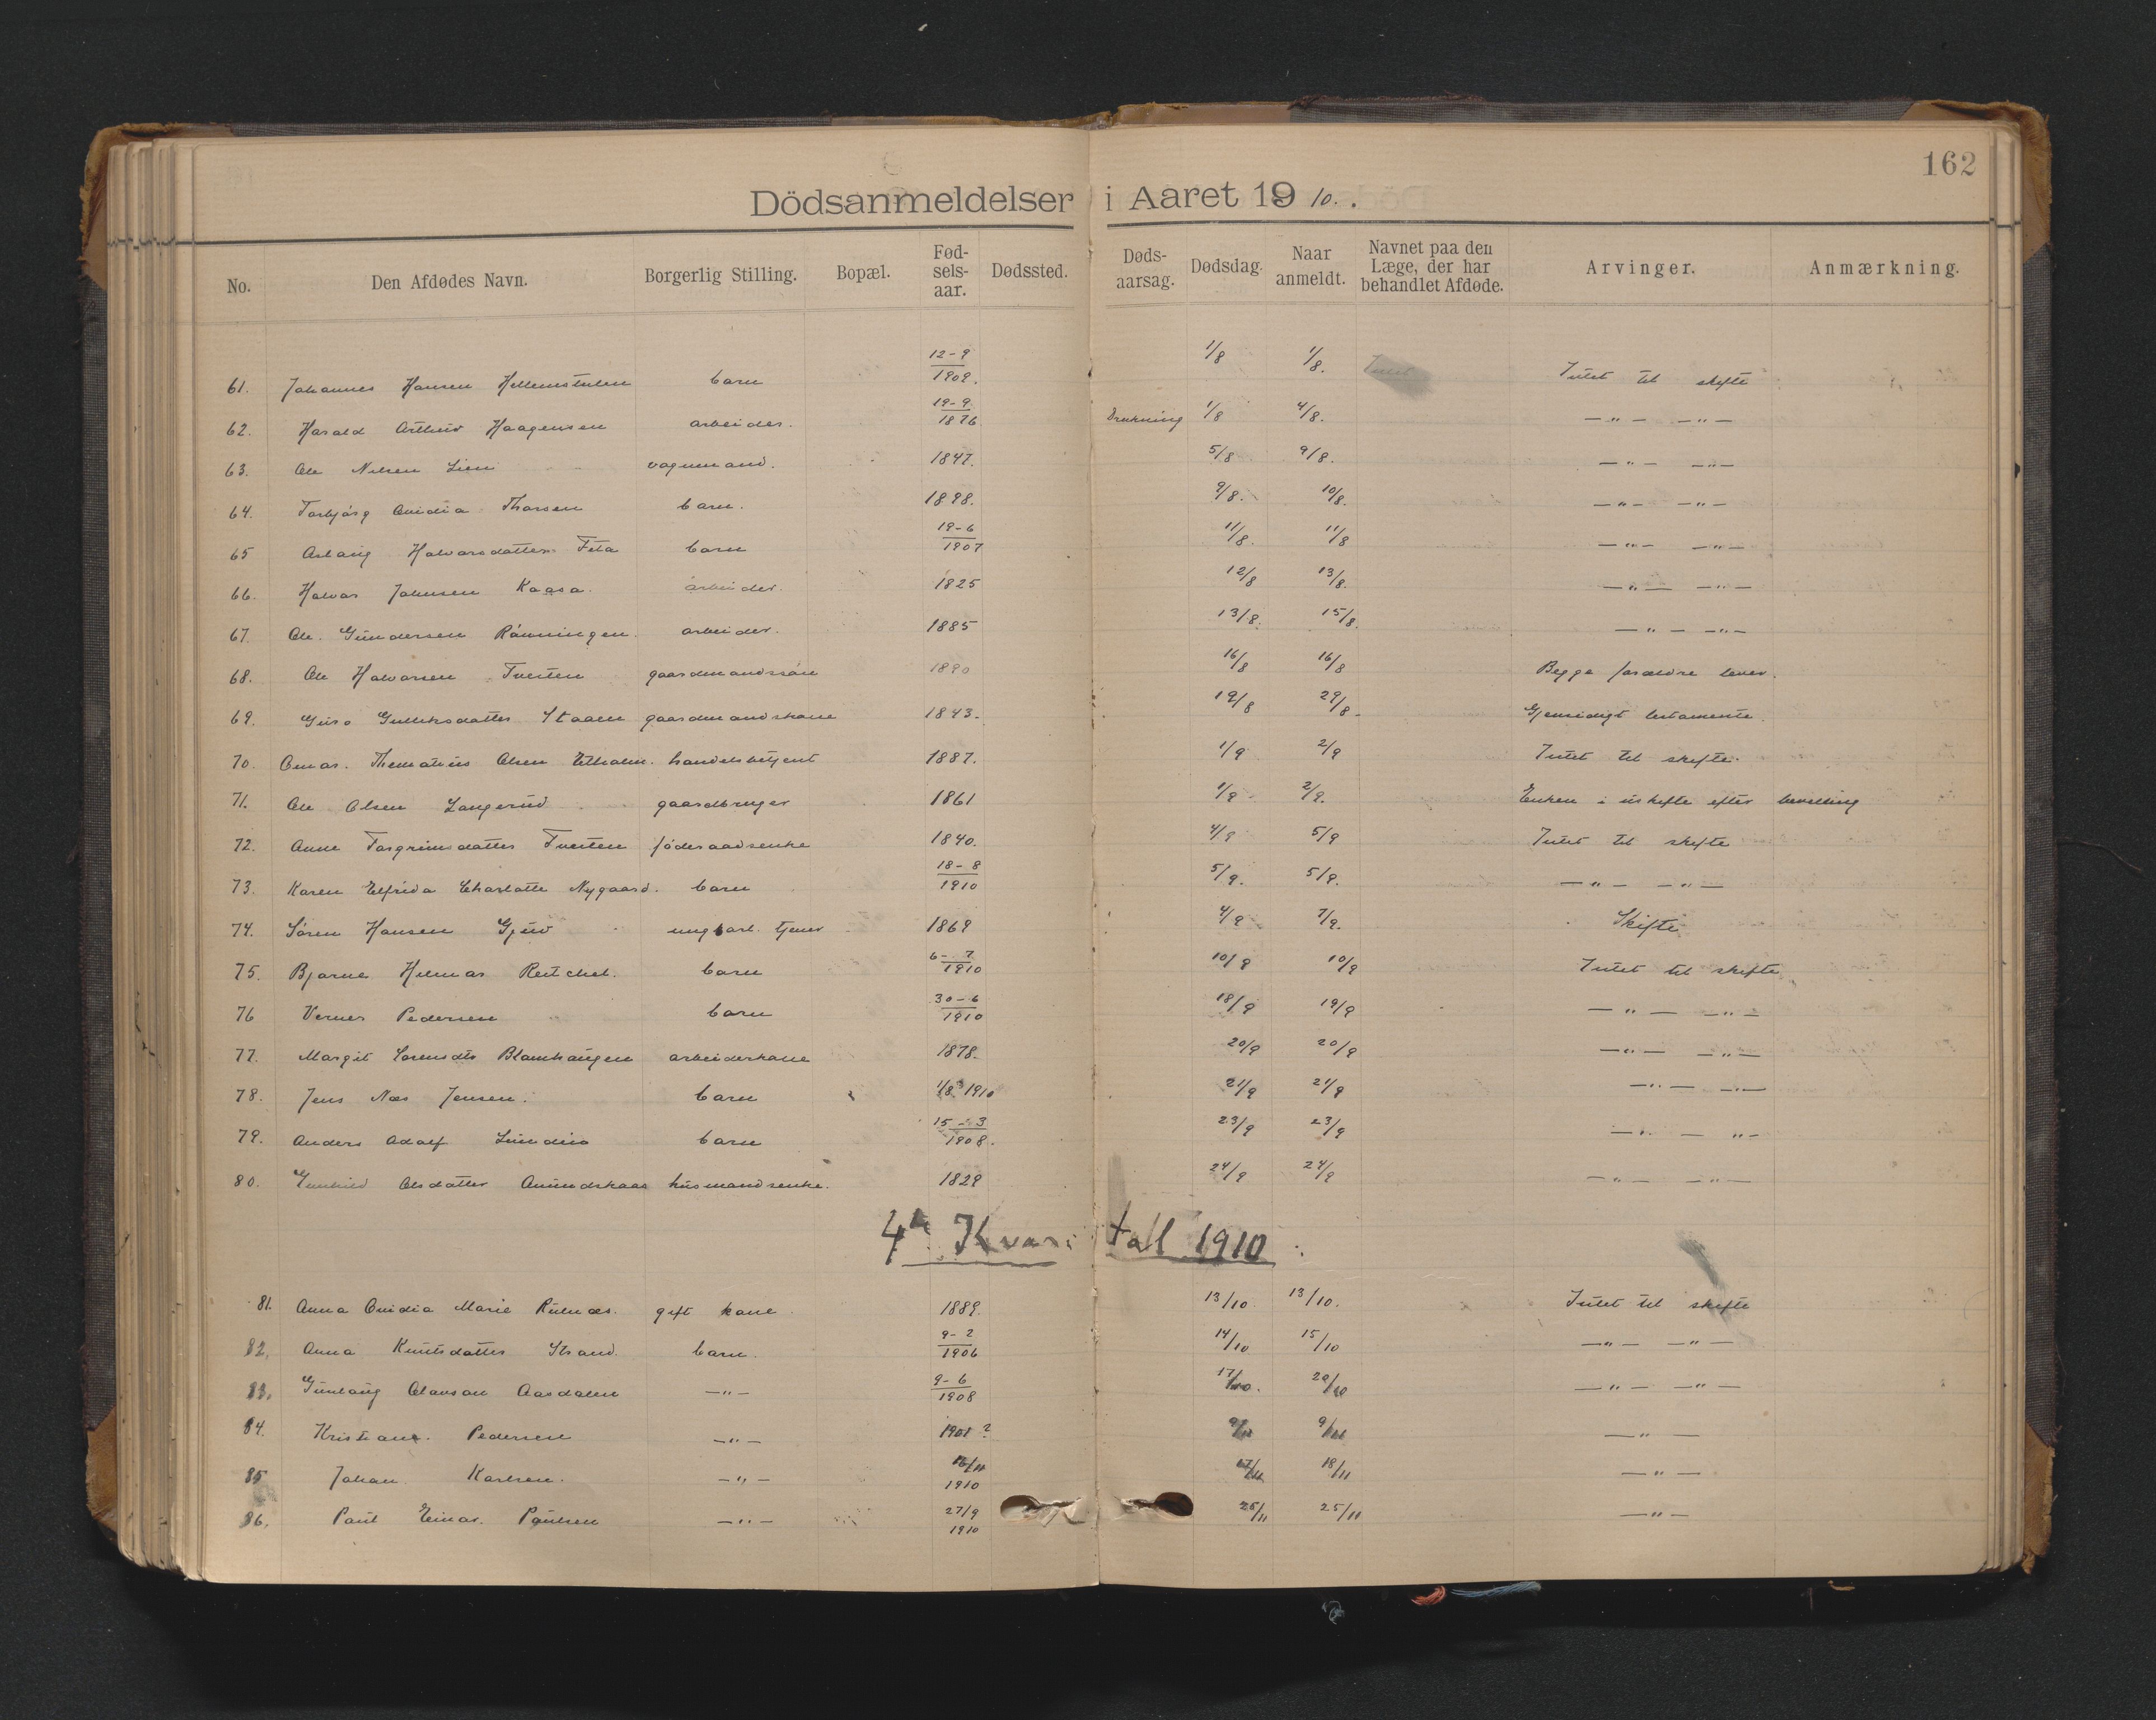 162
Dödsanmeldelser i Aaret 1910.
No. Den Afdødes Navn. Borgerlig Stilling. Bopæl. Fødselsaar. Dødssted. Dødsaarsag. Dødsdag. Naar anmeldt. Navnet paa den Læge, der har behandlet Afdøde. Arvinger. Anmærkning.
61. Johannes Hansen barn 12-9 1909. 1/8 1/8. Intet til skifte
62. Harald Arthur Haagensen arbeider. 19-9 1876 Drukning 1/8 4/8. —"— —"—
63. Ole Nilsen Lien vognmand. 1847. 5/8 9/8. —"— —"—
64. Torbjörg Ovidia Thorsen barn. 1898. 9/8. 10/8. —"— —"—
65 Aslaug Halvorsdatter Fela barn 19-6 1907 11/8. 11/8 —"— —"—
66. Halvor Johnsen Kaasa. arbeider. 1825 12/8 13/8. —"— —"—
67. Ole Gundersen Rönningen. arbeider. 1885 13/8. 15/8. —"— —"—
68. Ole Halvorsen Tveiten gaardmandssön 1890 16/8 16/8 Begge forældre lever.
69. Guro Gulliksdatter Staaen gaardmandskone 1843. 19/8 29/8. Gjensidigt testamente.
70. Thematius Olsen handelsbetjent 1887. 1/9 2/9 Intet til skifte.
71. Ole Olsen Langerud gaardbruger 1861 1/9 2/9. Enken i uskifte efter bevilling
72. Anne Torgrimsdatter Tveiten föderaadsenke 1840. 4/9 5/9 Intet til skifte
73. Karen Elfrida Charlotte Nygaard. barn 18-8 1910 5/9. 5/9. —"— —"—
74. Sören Hansen Gjuv ungkarl. tjener 1869 4/9 7/9. Skifte
75. Bjarne Hilmar barn 6-7 1910 10/9 10/9 Intet til skifte
76 Verner Pedersen barn 30-6 1910 18/9 19/9 —"— —"—
77. Margit Sorensdtr Blomhaugen arbeiderkone 1878. 20/9 20/9 —"— —"—
78. Jens Næs Jensen. barn 1/8 1910 21/9 21/9 —"— —"—
79. Anders Adolf barn 15-3 1908. 23/9 23/9 —"— "—
80. Gunhild Olsdatter Amundskaas husmandsenke. 1829 24/9 24/9 —"— —"—
4de Kvartal 1910.
81. Anna Ovidia Marie gift kone 1889. 13/10 13/10. Intet til skifte
82. Anna Knutsdatter Strand. barn. 9-2 1906 14/10 15/10 —"— —"—
83. Gunlaug Olavson Aasdalen —"— 9-6 1908 17/10. 20/10 —"— —"—
84. Kristiane Pedersen —"— 1901? 9/11 9/11 —"—
85 Johan Karlsen. —"— 16/11 1910 17/11 18/11 —"—
86. Paul Einar. Paulsen —"— 27/9 1910 25/11 25/11 —"—